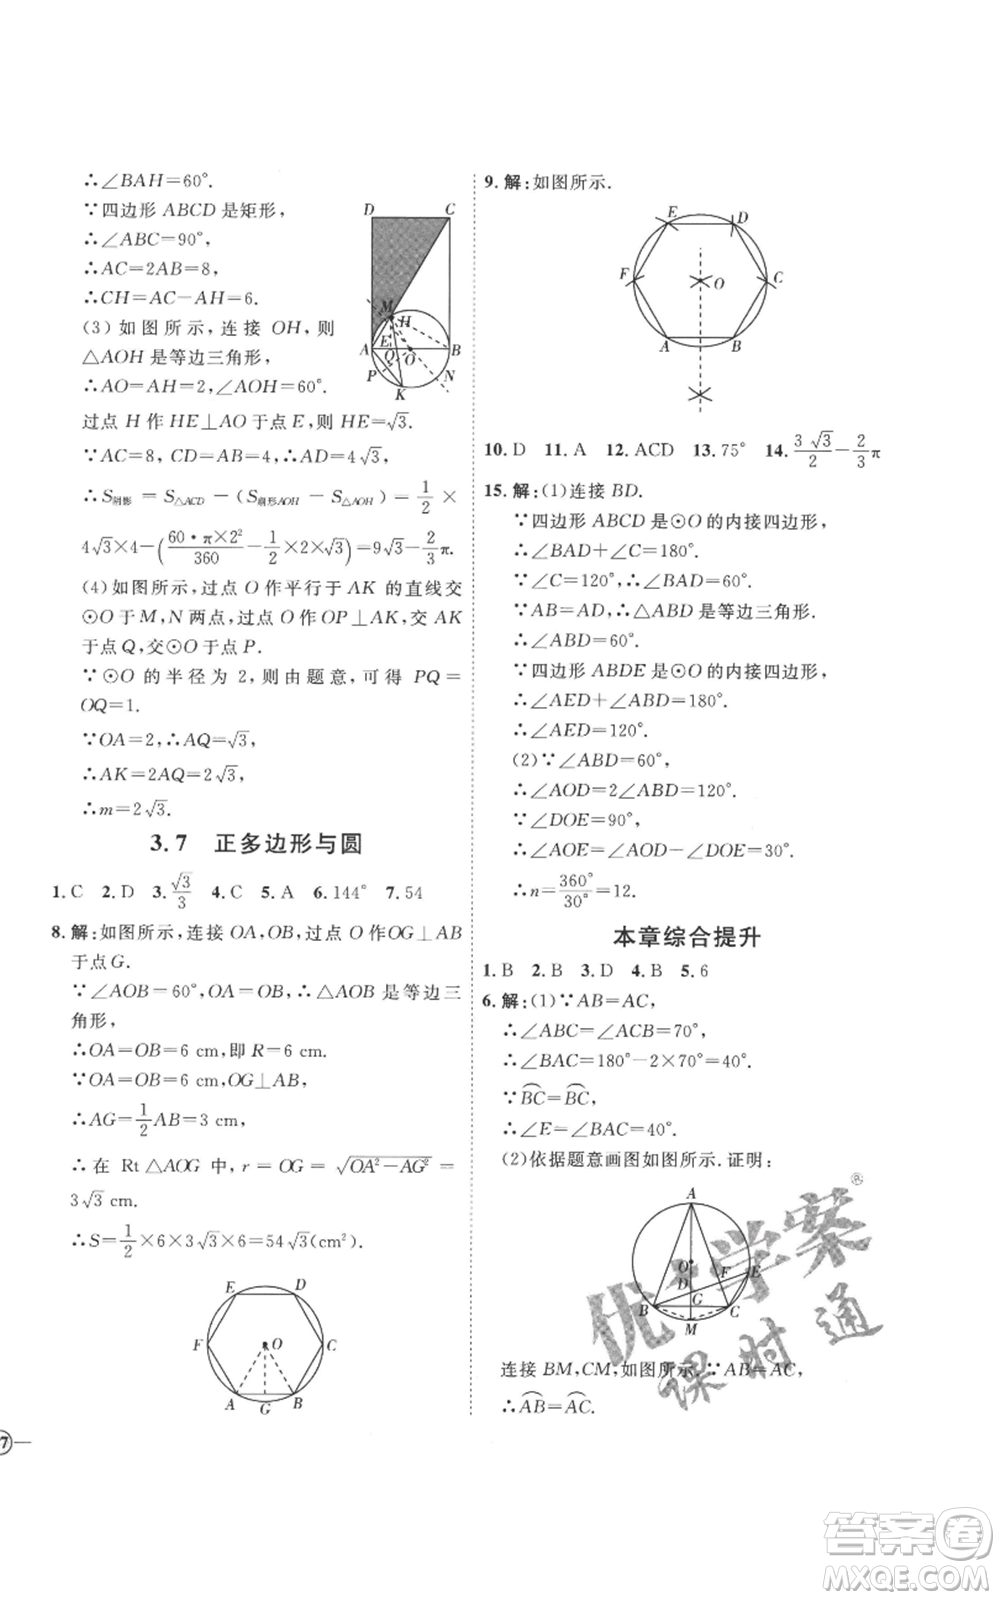 ∴∠BAH=60°.
∵四边形 ABCD 是矩形,
∴∠ABC=90°,
∴AC=2AB=8,
∴CH=AC-AH=6.
(3) 如图所示,连接 OH,则
△AOH 是等边三角形,
∴AO=AH=2,∠AOH=60°.
过点 H 作 HE⊥AO 于点 E,则 HE=√3.
∵AC=8,CD=AB=4,∴AD=4√3,
∴S阴影=S△ACD-(S扇形AOH-S△AOH)=1/2×
4√3×4-(60·π×2²/360-1/2×2×√3)=9√3-2/3π.
(4) 如图所示,过点 O 作平行于 AK 的直线交
⊙O 于 M,N 两点,过点 O 作 OP⊥AK,交 AK
于点 Q,交⊙O 于点 P.
∵⊙O 的半径为 2,则由题意,可得 PQ=
OQ=1.
∵OA=2,∴AQ=√3,
∴AK=2AQ=2√3,
∴m=2√3.
D C
M H
A E Q O B
P K N
3.7 正多边形与圆
1.C 2.D 3.√3/3 4.C 5.A 6.144° 7.54
8.解:如图所示,连接 OA,OB,过点 O 作OG⊥AB
于点G.
∵∠AOB=60°,OA=OB,∴△AOB 是等边三
角形,
∴OA=OB=6 cm,即 R=6 cm.
∵OA=OB=6 cm,OG⊥AB,
∴AG=1/2AB=3 cm,
∴在 Rt△AOG 中,r=OG=√(OA²-AG²)=
3√3 cm.
∴S=1/2×6×3√3×6=54√3(cm²).
E D
F O C
A G B
7
9.解:如图所示.
E D
F O C
A B
10.D 11.A 12.ACD 13.75° 14.3√3/2-2/3π
15.解:(1)连接 BD.
∵四边形 ABCD 是⊙O 的内接四边形,
∴∠BAD+∠C=180°.
∵∠C=120°,∴∠BAD=60°.
∵AB=AD,∴△ABD 是等边三角形.
∴∠ABD=60°.
∵四边形 ABDE 是⊙O 的内接四边形,
∴∠AED+∠ABD=180°.
∴∠AED=120°.
(2)∵∠ABD=60°,
∴∠AOD=2∠ABD=120°.
∵∠DOE=90°,
∴∠AOE=∠AOD-∠DOE=30°.
∴n=360°/30°=12.
本章综合提升
1.B 2.B 3.D 4.B 5.6
6.解:(1)∵AB=AC,
∴∠ABC=∠ACB=70°,
∴∠BAC=180°-2×70°=40°.
∵BC⌒=BC⌒,
∴∠E=∠BAC=40°.
(2)依据题意画图如图所示.证明:
A
O D F E
B G C
M
优+学案
课时通
连接 BM,CM,如图所示.∵AB=AC,
∴AB⌒=AC⌒.
答案圈
MXQE.COM